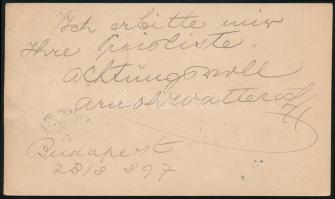 Ich erbitte mir
Ihre Preisliste.
achtungsvoll
Budapest
23/8 897